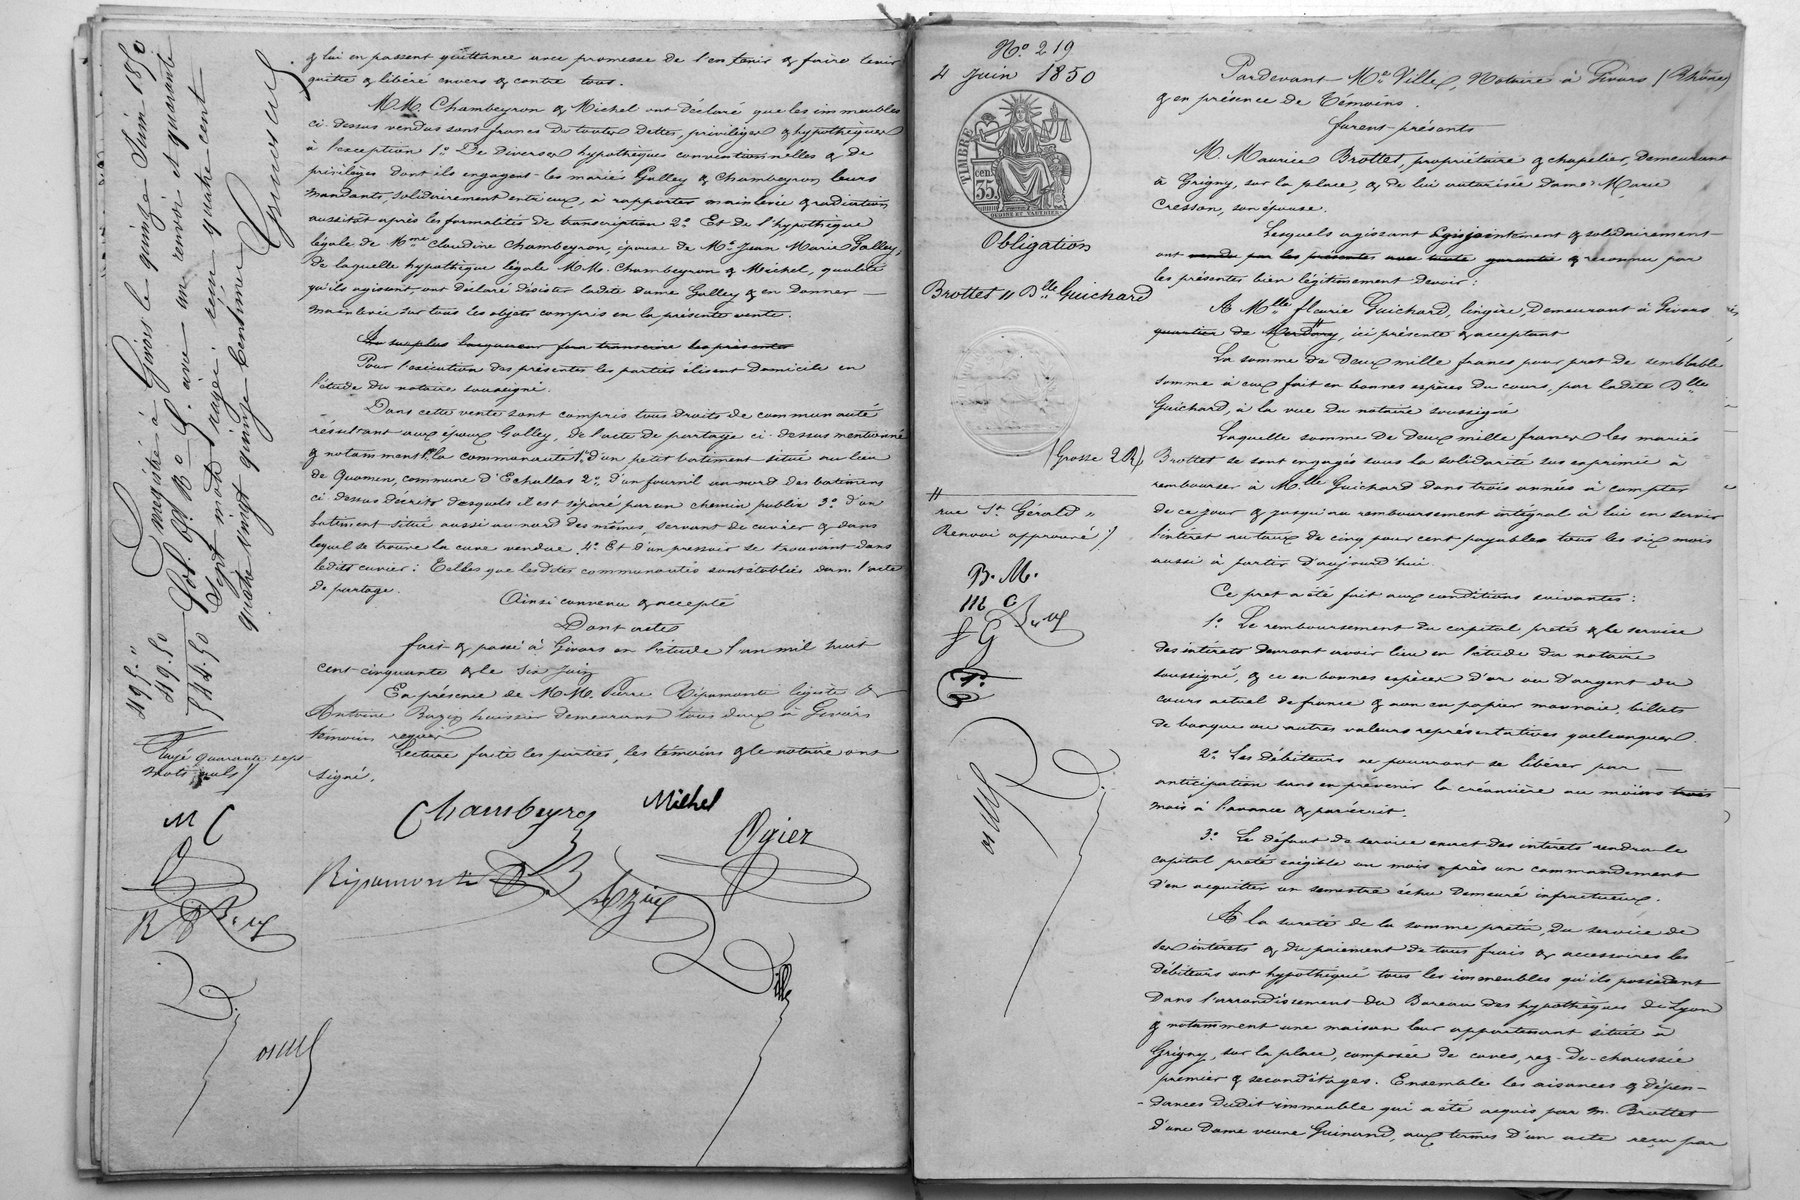 & lui en passent quittance avec promesse de l'en tenir & faire tenir
quitte & libéré envers & contre tous.
M.M. Chambeyron & Michel ont déclaré que les immeubles
ci-dessus vendus sont francs de toutes dettes, privilèges & hypothèques
à l'exception 1.º De diverses hypothèques conventionnelles & de
privilèges dont ils engagent les mariés Golley & Chambeyron, leurs
mandants, solidairement entr'eux, à rapporter mainlevée & radiation
aussitôt après les formalités de transcription 2.º Et de l'hypothèque
légale de Mme Claudine Chambeyron, épouse de Mr Jean Marie Golley,
de laquelle hypothèque légale M.M. Chambeyron & Michel, qualité
qu'ils agissent, ont déclaré désister ladite dame Golley & en donner
mainlevée sur tous les objets compris en la présente vente.
Au surplus l'acquéreur fera transcrire les présentes
Pour l'exécution des présentes les parties élisent domicile en
l'étude du notaire soussigné.
Dans cette vente sont compris tous droits de communauté
résultant aux époux Golley, de l'acte de partage ci-dessus mentionné
& notamment la communauté 1.º d'un petit batiment situé au lieu
de Quomen, commune d'Echallas 2.º d'un fournil au nord des batimens
ci dessus décrits desquels il est séparé par un chemin public 3.º d'un
batiment situé aussi au nord des mêmes, servant de cuvier & dans
lequel se trouve la cuve vendue 4.º Et d'un pressoir se trouvant dans
ledit cuvier: Telles que lesdites communautés sont établies dans l'acte
de partage.
Ainsi convenu & accepté
Dont acte
fait & passé à Givors en l'étude l'an mil huit
cent cinquante & le six juin
En présence de M.M. Pierre Ripamonti légiste &
Antoine Bazin huissier demeurant tous deux à Givors
témoins requis
Lecture faite les parties, les témoins & le notaire ont
signé.
Chambeyron Michel
Ogier
Ripamonti
Ville
Enregistré à Givors le quinze Juin 1850
Fol. 69 R.º C. avec un renvoi et quarante
sept mots rayés: reçu quatre cent
quatre vingt quinze centimes
495."
49.50
544.50
Rayé quarante sept
mots nuls
M C
N.º 219
4 Juin 1850
TIMBRE
cen
35
Obligation
Brottet // Dlle Guichard
(Grosse 2 R)
//
rue St Gérald "
Renvoi approuvé
B. M.
m C
f G
Pardevant Me Ville, Notaire à Givors (Rhône)
& en présence de Témoins.
furent-présents
M. Maurice Brottet, propriétaire & chapelier, demeurant
à Grigny, sur la place, & de lui autorisée Dame Marie
Cresson, son épouse.
Lesquels agissant conjointement & solidairement
ont vendu par les présentes avec toute garantie & reconnu par
les présentes bien légitimement devoir:
A Mlle fleurie Guichard, lingère, demeurant à Givors
quartier de Merdary, ici présente & acceptant
La somme de deux mille francs pour prêt de semblable
somme à eux fait en bonnes espèces du cours, par ladite Dlle
Guichard, à la vue du notaire soussigné
Laquelle somme de deux mille francs les mariés
Brottet se sont engagés sous la solidarité sus exprimée à
rembourser à Mlle Guichard dans trois années à compter
de ce jour & jusqu'au remboursement intégral à lui en servir
l'intérêt au taux de cinq pour cent payables tous les six mois
aussi à partir d'aujourd'hui
Ce prêt a été fait aux conditions suivantes:
1.º Le remboursement du capital prêté & le service
des intérêts devront avoir lieu en l'étude du notaire
soussigné, & ce en bonnes espèces d'or ou d'argent du
cours actuel de france & non en papier monnaie, billets
de banque ou autres valeurs représentatives quelconques
2.º Les débiteurs ne pourront se libérer par
anticipation sans en prévenir la créancière au moins trois
mois à l'avance & par écrit.
3.º Le défaut de service exact des intérêts rendra le
capital prêté exigible un mois après un commandement
d'en acquitter un semestre échu demeuré infructueux.
A la sureté de la somme prêtée, du service de
ses intérêts & du paiement de tous frais & accessoires les
débiteurs ont hypothéqué tous les immeubles qu'ils possèdent
dans l'arrondissement du Bureau des hypothèques de Lyon
& notamment une maison leur appartenant située à
Grigny, sur la place, composée de caves, rez-de-chaussée
premier & second étages. Ensemble les aisances & dépen-
-dances dudit immeuble qui a été acquis par M. Brottet
d'une Dame veuve Guinand, aux termes d'un acte reçu par